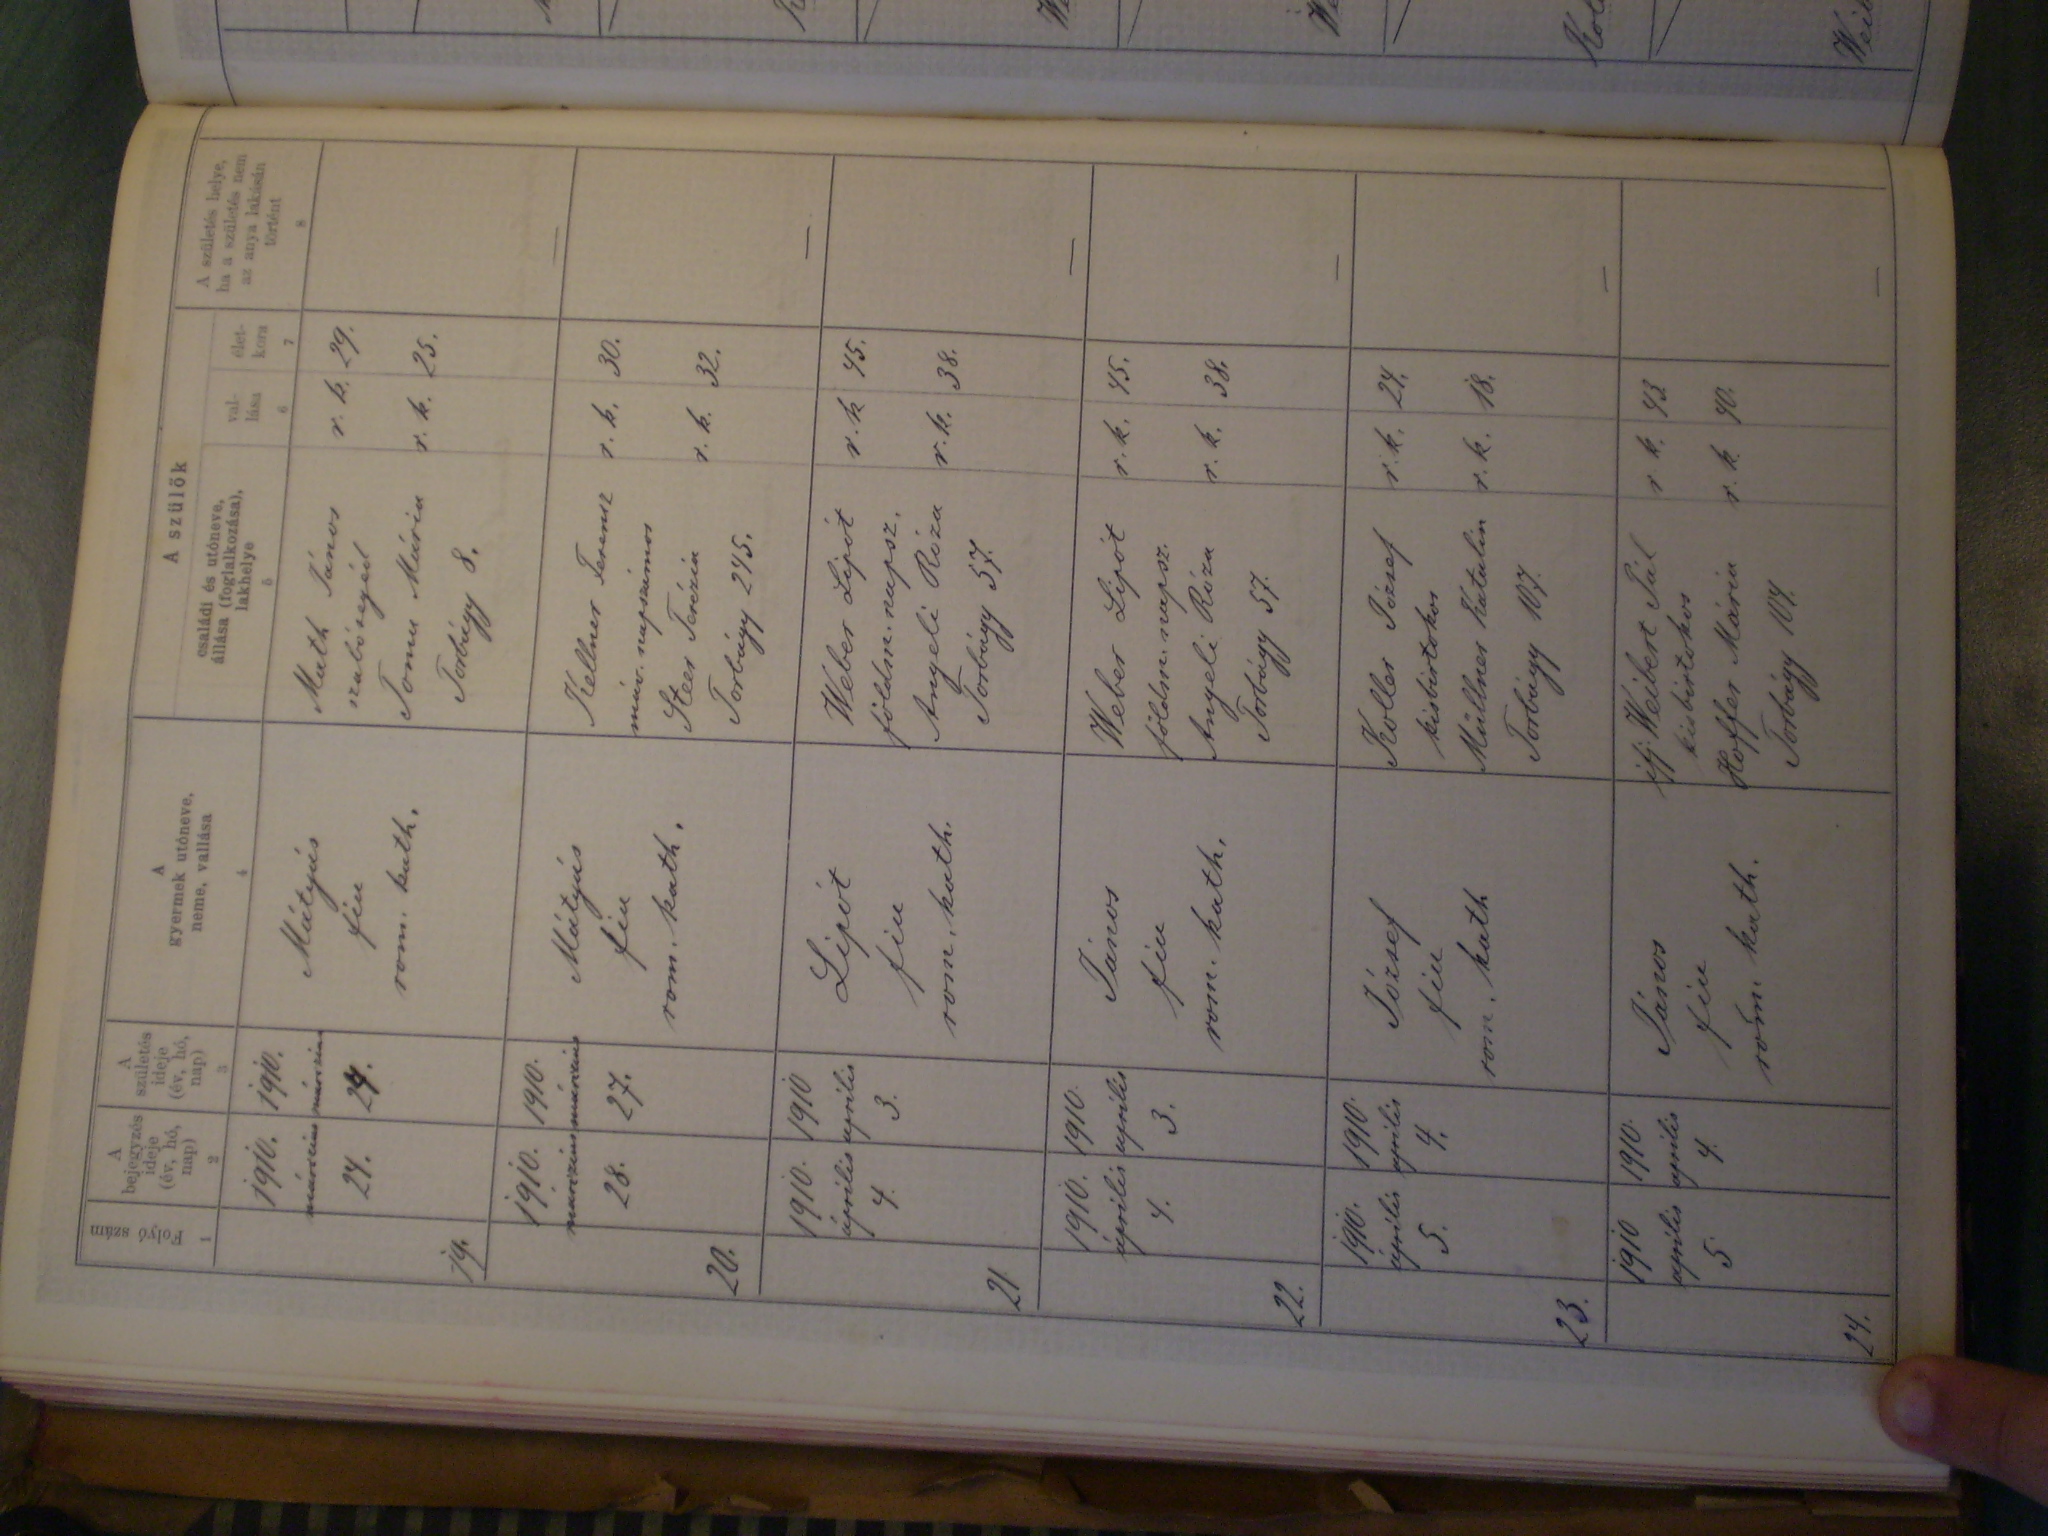 Folyó szám
1
A
bejegyzés
ideje
(év, hó,
nap)
2
A
születés
ideje
(év, hó,
nap)
3
A
gyermek utóneve,
neme, vallása
4
A szülők
családi és utóneve,
állása (foglalkozása),
lakhelye
5
val-
lása
6
élet-
kora
7
A születés helye,
ha a születés nem
az anya lakásán
történt
8
19.
1910.
március
24.
1910.
március
24.
Mátyás
fiu
rom. kath.
Muth János
szabósegéd
Toma Mária
Torbágy 8.
r. k. 29.
r. k. 25.
—
20.
1910.
március
28.
1910.
március
27.
Mátyás
fiu
rom. kath.
Kellner Ferensz
máv. napszámos
Steer Terézia
Torbágy 245.
r. k. 30.
r. k. 32.
—
21
1910.
április
4.
1910
április
3.
Lipót
fiu
rom. kath.
Weber Lipót
földm. napsz.
Angeli Róza
Torbágy 57.
r. k 45.
r. k. 38.
—
22.
1910.
április
4.
1910.
április
3.
János
fiu
rom. kath.
Weber Lipót
földm. napsz.
Angeli Róza
Torbágy 57.
r. k. 45.
r. k. 38.
—
23.
1910.
április
5.
1910.
április
4.
József
fiu
rom. kath
Koller József
kisbirtokos
Müllner Katalin
Torbágy 107.
r. k. 24.
r. k. 18.
—
24.
1910
április
5
1910.
április
4.
János
fiu
róm. kath.
ifj. Weibert Pál
kisbirtokos
Hoffer Mária
Torbágy 104.
r k. 43
r. k. 40.
—